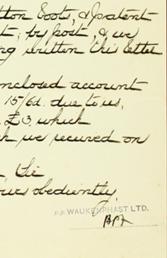 tton Boots, & patent
t; by post, & we
ng written this letter
enclosed account
15/6d. due to us,
£3, which
h we received on
the
ours obediently,
P.P. WAUKENPHAST LTD.